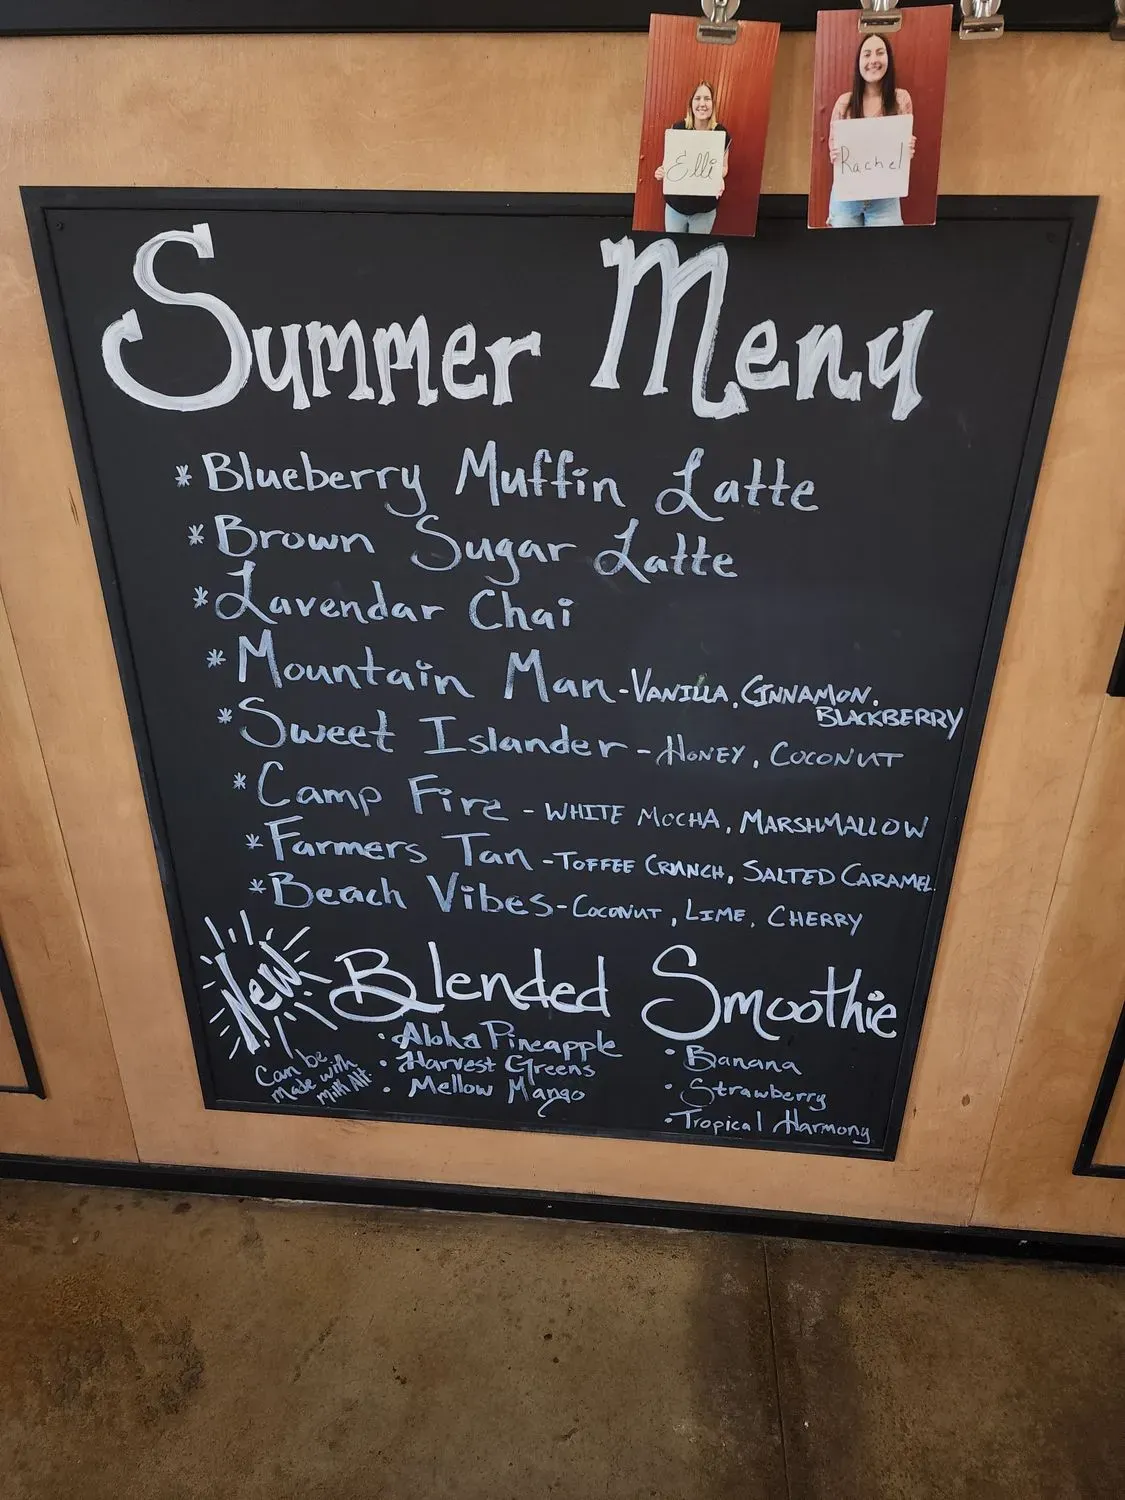 Elli
Rachel
Summer Menu
* Blueberry Muffin Latte
* Brown Sugar Latte
* Lavendar Chai
* Mountain Man - VANILLA, CINNAMON,
BLACKBERRY
* Sweet Islander - HONEY, COCONUT
* Camp Fire - WHITE MOCHA, MARSHMALLOW
* Farmers Tan - TOFFEE CRUNCH, SALTED CARAMEL
* Beach Vibes - COCONUT, LIME, CHERRY
New Blended Smoothie
Can be
made with
milk Alt.
• Aloha Pineapple
• Harvest Greens
• Mellow Mango
• Banana
• Strawberry
• Tropical Harmony